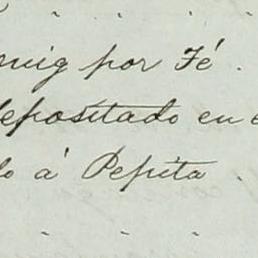 muig por Fé.
depositado en e
do á Pepita.